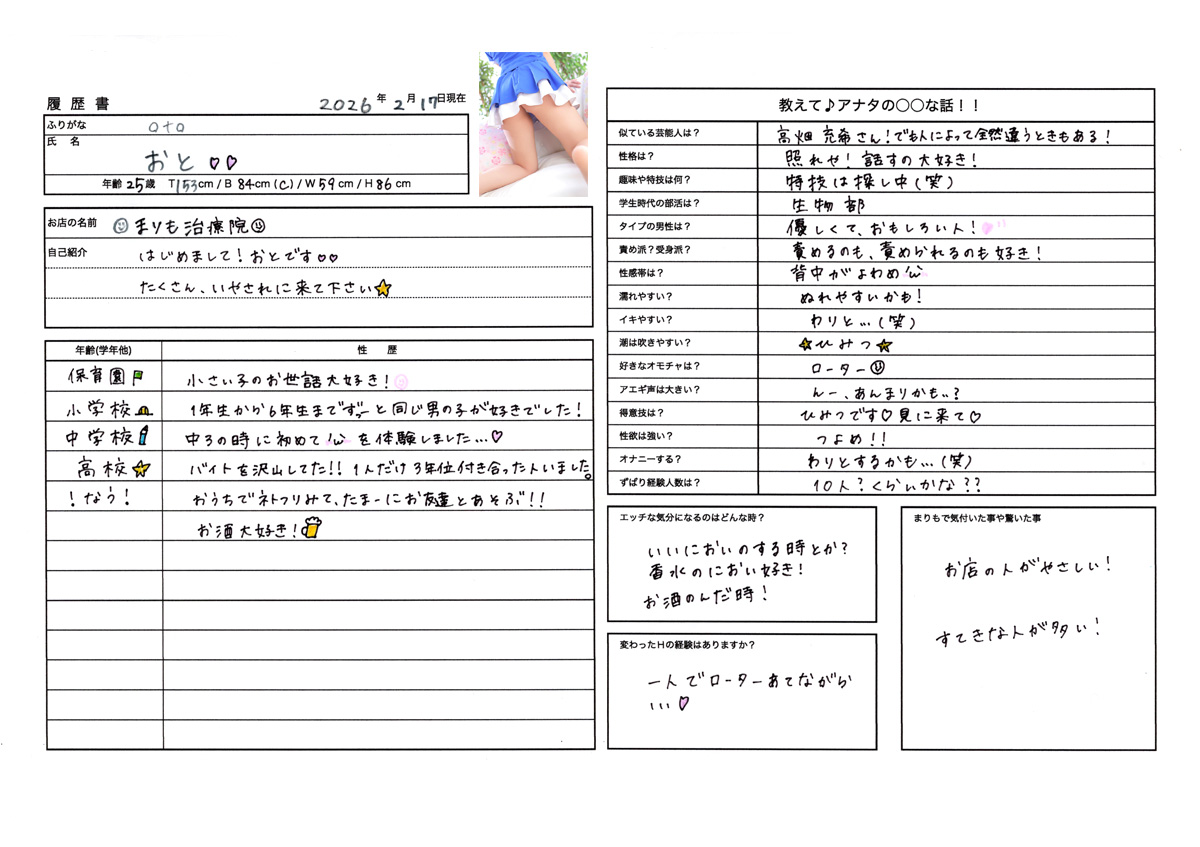 履歴書
2026年2月17日現在
ふりがな oto
氏 名 おと♡♡
年齢25歳 T153cm / B 84cm (C) / W 59cm / H 86cm
お店の名前 まりも治療院
自己紹介 はじめまして!おとです♡♡
たくさん、いやされに来て下さい
年齢(学年他) 性 歴
保育園 小さい子のお世話大好き!
小学校 1年生から6年生までずーっと同じ男の子が好きでした!
中学校 中3の時に初めて を体験しました…♡
高校 バイトを沢山してた!!1人だけ3年位付き合った人いました。
!なう! おうちでネトフリみて、たまーにお友達とあそぶ!!
お酒大好き!
教えて♪アナタの○○な話!!
似ている芸能人は? 高畑充希さん!でも人によって全然違うときもある!
性格は? 照れせ!話すの大好き!
趣味や特技は何? 特技は探し中(笑)
学生時代の部活は? 生物部
タイプの男性は? 優しくて、おもしろい人!
責め派?受身派? 責めるのも、責められるのも好き!
性感帯は? 背中がよわめ
濡れやすい? ぬれやすいかも!
イキやすい? わりと…(笑)
潮は吹きやすい? ☆ひみつ☆
好きなオモチャは? ローター
アエギ声は大きい? んー、あんまりかも..?
得意技は? ひみつです♡見に来て♡
性欲は強い? つよめ!!
オナニーする? わりとするかも…(笑)
ずばり経験人数は? 10人?くらいかな??
エッチな気分になるのはどんな時?
いいにおいのする時とか?
香水のにおい好き!
お酒のんだ時!
変わったHの経験はありますか?
一人でローターあてながら
…♡
まりもで気付いた事や驚いた事
お店の人がやさしい!
すてきな人が多い!